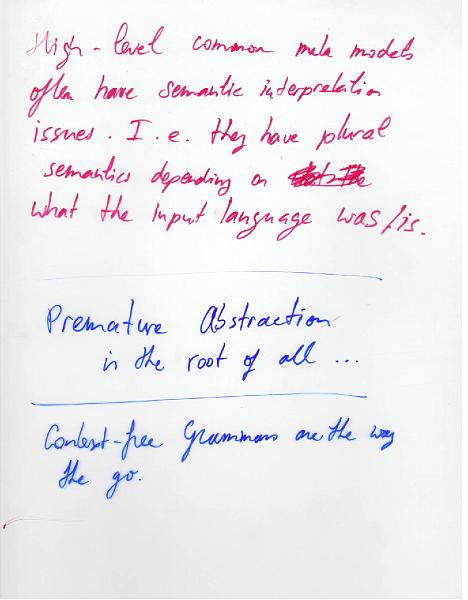 High-level common meta models
often have semantic interpretation
issues. I.e. they have plural
semantics depending on
what the input language was/is.
Premature Abstraction
in the root of all ...
Context-free Grammars are the way
the go.